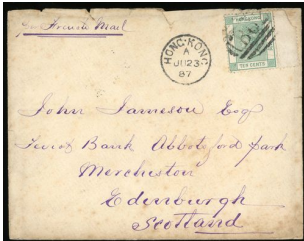 per French Mail
HONG-KONG
A
JU 23
87
HONG KONG
TEN CENTS
John Jameson Esq
Teviot Bank Abbotsford Park
Merchiston
Edinburgh
Scotland